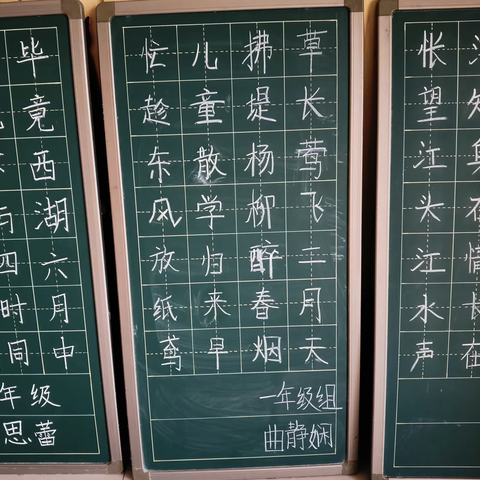 毕竟西湖六月中
与四时同
年级
思蕾
草长莺飞二月天
拂堤杨柳醉春烟
儿童散学归来早
忙趁东风放纸鸢
一年级组
曲静娴
知身在情长在
怅望江头江水声